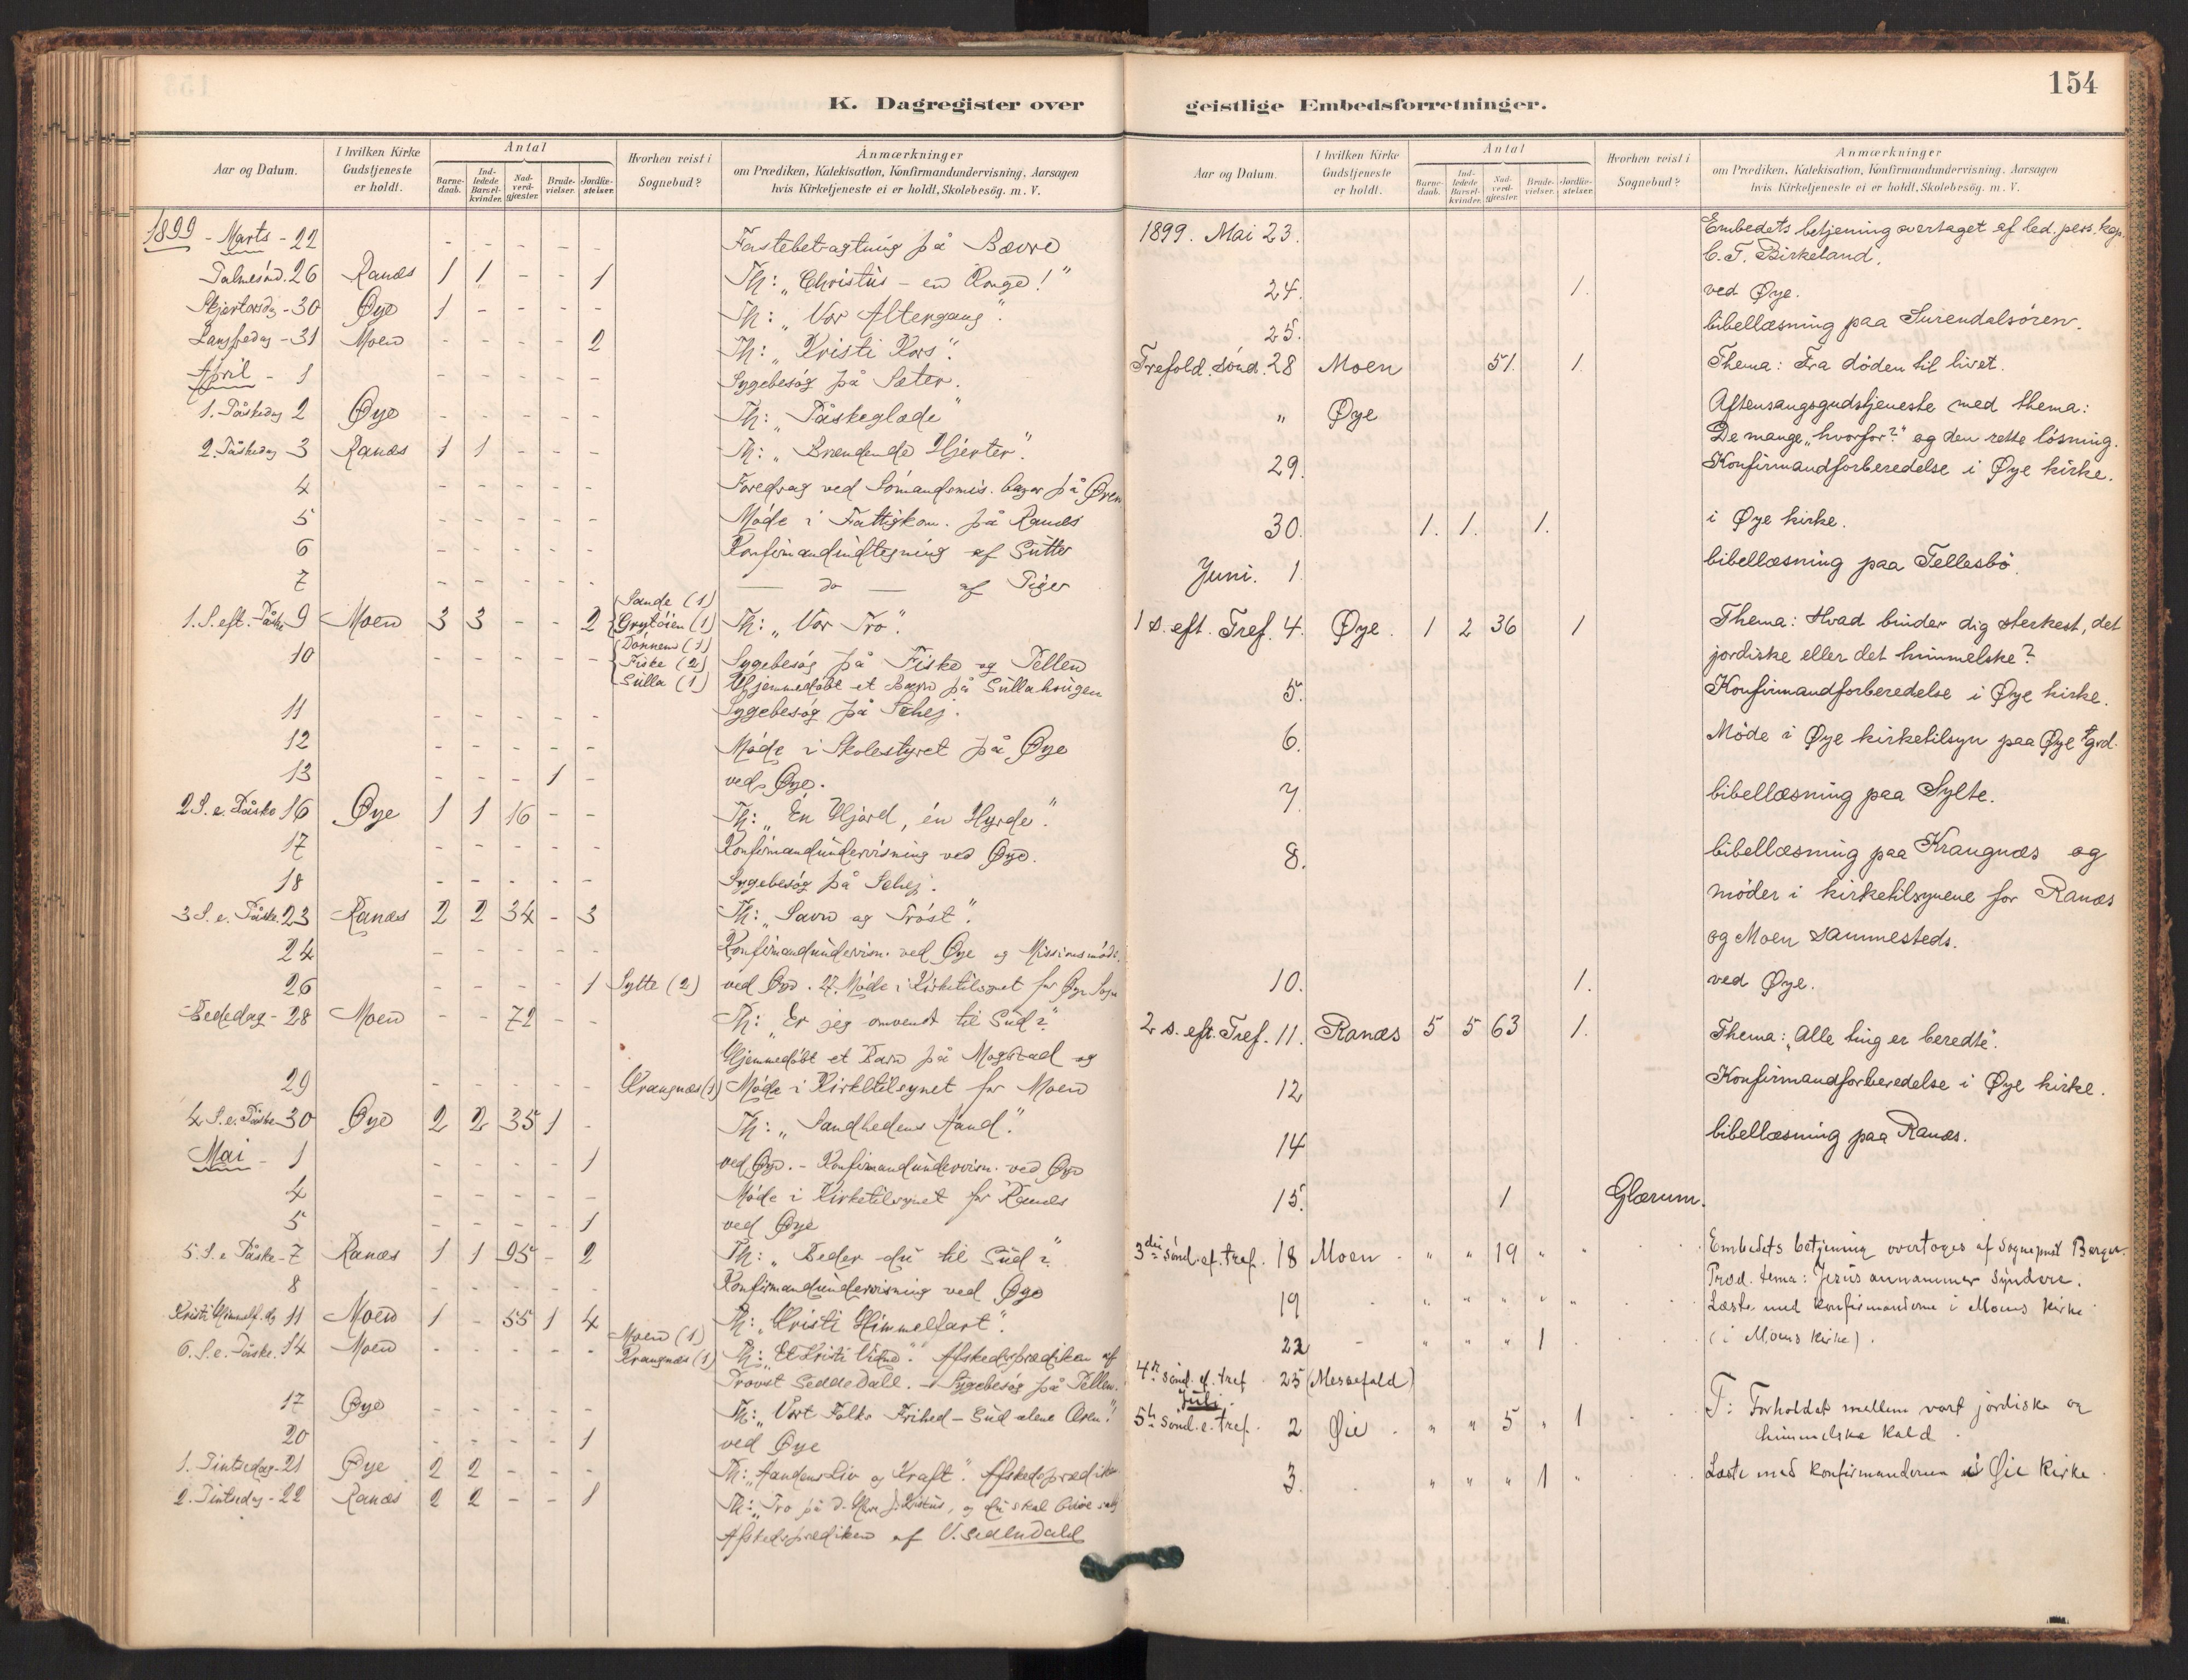 154
K. Dagregister over geistlige Embedsforretninger.
Aar og Datum. I hvilken Kirke Gudstjeneste er holdt. Antal Barnedaab. Indledede Barselkvinder. Nadverdgjæster. Brudevielser. Jordfæstelser. Hvorhen reist i Sognebud? Anmærkninger om Prædiken, Katekisation, Konfirmandundervisning, Aarsagen hvis Kirketjeneste ei er holdt, Skolebesøg. m. V.
1899 - Marts - 22 - - - - - Fastebetragtning på Bævre
Palmesønd. 26 Ranæs 1 1 - - 1 Th: „Christus - en Konge!"
Skjærtorsdag - 30 Øye 1 - - - - Th: „Vor Altergang".
Langfredag - 31 Moen - - - - 2 Th: „Kristi Kors".
April - 1 - - - - - Sygebesøg på Sæter.
1. Påskedag 2 Øye - - - - - Th: „Påskeglæde"
2. Påskedag 3 Ranæs 1 1 - - - Th: „Brændende Hjerter".
4 - - - - - Foredrag ved Sømandsmis. bazar på Øren
5 - - - - - Møde i Fattigkom. på Ranæs
6 - - - - - Konfirmandindtegning af Gutter
7 - - - - - — do — af Piger
1. S. eft. Påske 9 Moen 3 3 - - 2 Sande (1) Grytøien (1) Th: „Vor Tro".
10 - - - - - Dønnem (1) Fiske (2) Sulla (1) Sygebesøg på Fiske og Tellen
Hjemmedøbt et Barn på Sullahaugen
11 - - - - - Sygebesøg på Schej.
12 - - - - - Møde i Skolestyret på Øye
13 - - - 1 - ved Øye.
2 S. e. Påske 16 Øye 1 1 16 - - Th: „Én Hjord, én Hyrde".
17 - - - - - Konfirmandundervisning ved Øye.
18 - - - - - Sygebesøg på Schej.
3 S. e. Påske 23 Ranæs 2 2 34 - 3 Th: „Savn og Trøst".
24 - - - - - Konfirmandundervisn. ved Øye og Missionsmøde
26 - - - - 1 Sylte (2) ved Øye. 27. Møde i Kirketilsynet for Øye Sogn
Bededag - 28 Moen - - 72 - - Th: „Er jeg omvendt til Gud?"
Hjemmedøbt et Barn på Mogstad og
29 - - - - - Krangnæs (1) Møde i Kirketilsynet for Moen
4 S. e. Påske 30 Øye 2 2 35 1 - Th: „Sandhedens Aand".
Mai - 1 - - - - 1 ved Øye. - Konfirmandundervisn. ved Øye
4 - - - - - Møde i Kirketilsynet for Ranæs
5 - - - - 1 ved Øye
5. S. e. Påske - 7 Ranæs 1 1 95 - 2 Th: „Beder du til Gud?
8 - - - - Konfirmandundervisning ved Øye
Kristi Himmelf. dg 11 Moen 1 - 55 1 4 Th: „Kristi Himmelfart".
6. S. e. Påske. 14 Moen - - - - - Moen (1) Krangnæs (1) Th: „Et Kristi Vidne". Afskedsprædiken af
Provst Seddedall. - Sygebesøg på Tellen.
17 Øye - - - - - Th: „Vort Folks Frihed - Gud alene Æren!"
20 - - - - 1 ved Øye
1. Pintsedag - 21 Øye 2 2 - - - Th: „Aandens Liv og Kraft". Afskedsprædiken
2. Pintsedag - 22 Ranæs 2 2 - - 1 Th: „Tro på d. Herre J. Kristus, og du skal blive salig
Afskedsprædiken af
Aar og Datum. I hvilken Kirke Gudstjeneste er holdt. Antal Barnedaab. Indledede Barselkvinder. Nadverdgjæster. Brudevielser. Jordfæstelser. Hvorhen reist i Sognebud? Anmærkninger om Prædiken, Katekisation, Konfirmandundervisning, Aarsagen hvis Kirketjeneste ei er holdt, Skolebesøg. m. V.
1899. Mai 23. Embedets betjening overtaget af led. pers. kap.
C. T. Birkeland.
24. 1. ved Øye.
25. bibellæsning paa Surendalsøren.
Trefold. sønd. 28 Moen 51. 1. Thema: Fra døden til livet.
„ Øye Aftensangsgudstjeneste med thema:
De mange „hvorfor?" og den rette løsning.
29. Konfirmandforberedelse i Øye kirke.
30. 1. 1. 1. i Øye kirke.
Juni. 1. bibellæsning paa Tellesbø.
1 s. eft. Tref. 4. Øye. 1 2 36 1 Thema: Hvad binder dig sterkest, det
jordiske eller det himmelske?
5. Konfirmandforberedelse i Øye kirke.
6. Møde i Øye kirketilsyn paa Øye pgrd.
7. bibellæsning paa Sylte.
8. bibellæsning paa Krangnæs og
møder i kirketilsynene for Ranæs
og Moen sammesteds.
10. 1. ved Øye.
2 s. eft. Tref. 11. Ranæs 5 5 63 1. Thema: „Alle ting er beredte".
12 Konfirmandforberedelse i Øye kirke.
14 bibellæsning paa Ranæs.
15. 1 Glærum.
3die sønd. ef. tref. 18 Moen - „ „ 19 „ „ Embedets betjening overtoges af Sogneprest
Præd. tema: Jesus annammer syndere.
19 - „ „ „ „ „ Læste med konfirmanderne i Moens kirke
22 - „ „ „ 1 . (i Moens kirke).
4de sønd. ef. tref 25 (Messefald)
Juli
5te sønd. e. tref. 2 Øie „ „ 5 „ 1 T: Forholdet mellem vort jordiske og
himmelske kald.
3. „ „ „ 1 „ Læste med konfirmanderne i Øie kirke.